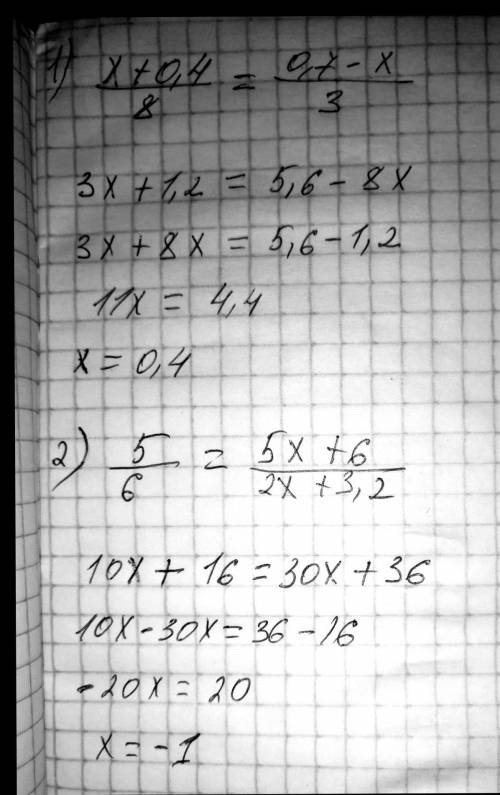 1) x+0,4/8 = 0,7-x/3
3x+1,2 = 5,6-8x
3x+8x = 5,6-1,2
11x = 4,4
x = 0,4
2) 5/6 = 5x+6/2x+3,2
10x+16=30x+36
10x-30x=36-16
-20x=20
x=-1